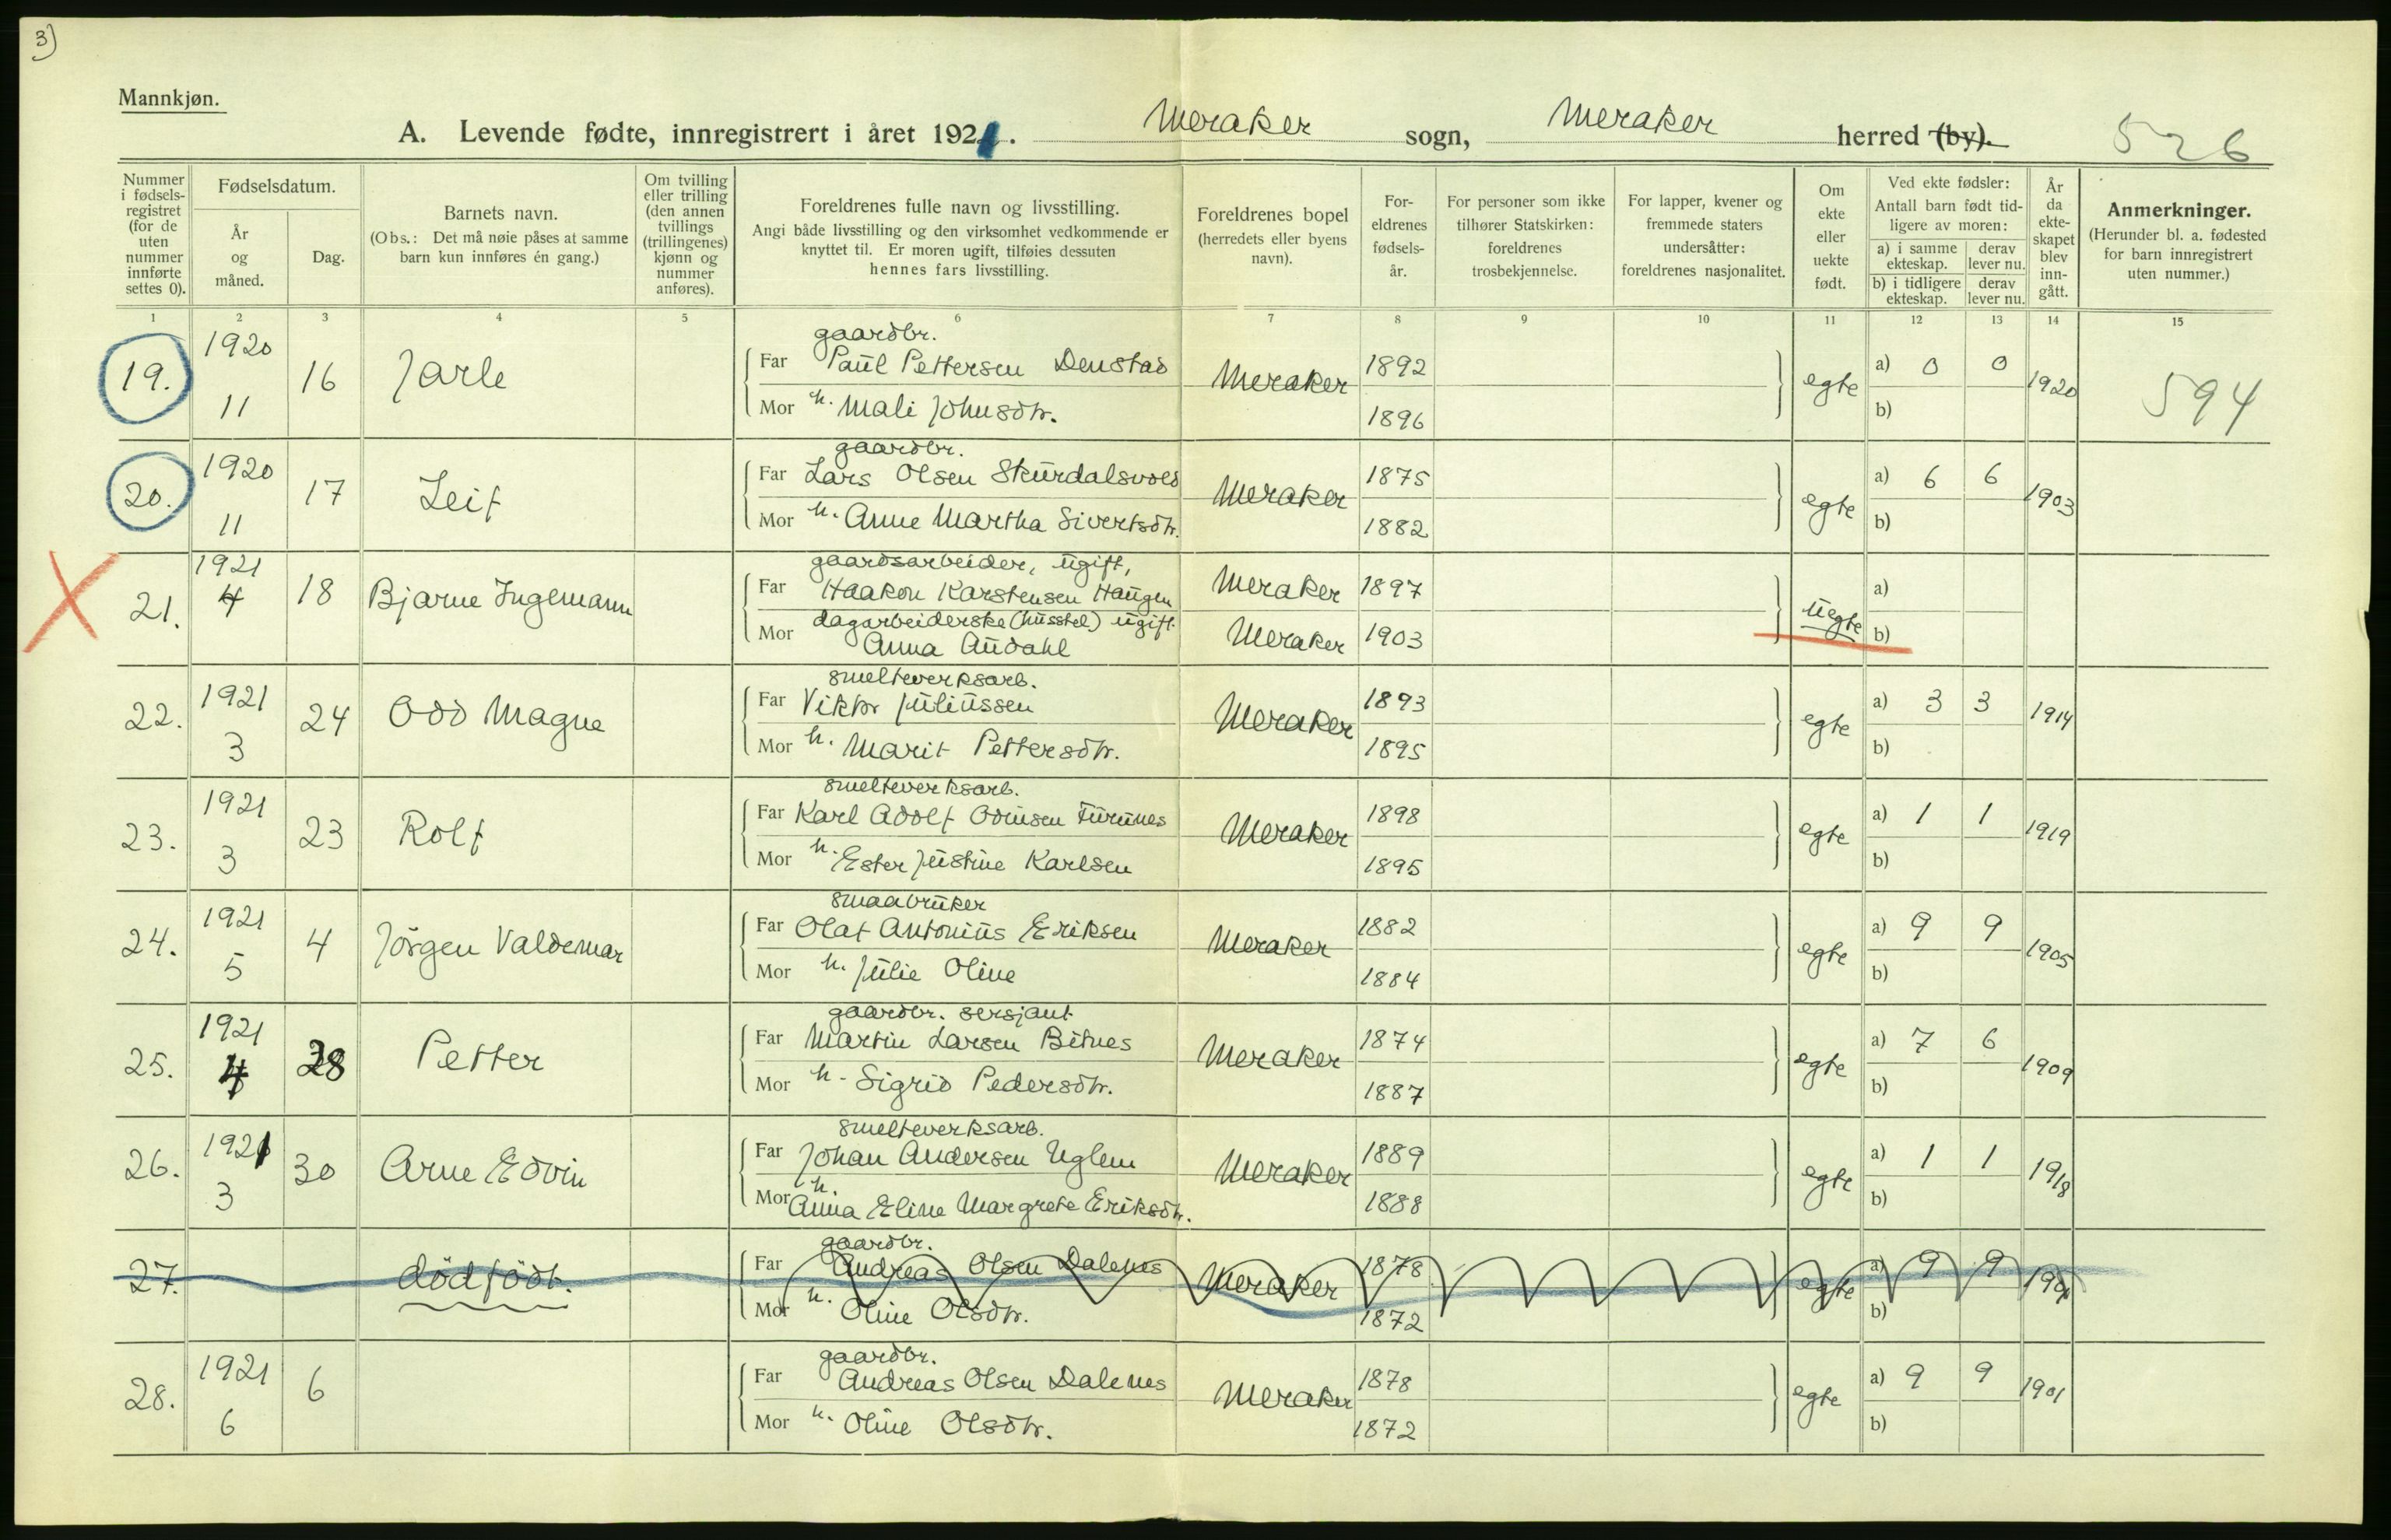 3)
Mannkjøn.
A. Levende fødte, innregistrert i året 1921. Meraker sogn, Meraker herred (by). 526
Nummer i fødsels-registret (for de uten nummer innførte settes 0).
Fødselsdatum.
År og måned.
Dag.
Barnets navn.
(Obs.: Det må nøie påses at samme barn kun innføres én gang.)
Om tvilling eller trilling (den annen tvillings (trillingenes) kjønn og nummer anføres).
Foreldrenes fulle navn og livsstilling.
Angi både livsstilling og den virksomhet vedkommende er knyttet til. Er moren ugift, tilføies dessuten hennes fars livsstilling.
Foreldrenes bopel (herredets eller byens navn).
For-eldrenes fødsels-år.
For personer som ikke tilhører Statskirken: foreldrenes trosbekjennelse.
For lapper, kvener og fremmede staters undersåtter: foreldrenes nasjonalitet.
Om ekte eller uekte født.
Ved ekte fødsler: Antall barn født tid-ligere av moren:
a) i samme ekteskap. derav lever nu.
b) i tidligere ekteskap. derav lever nu.
År da ekte-skapet blev inn-gått.
Anmerkninger.
(Herunder bl. a. fødested for barn innregistrert uten nummer.)
1 2 3 4 5 6 7 8 9 10 11 12 13 14 15
gaardbr.
19. 1920 11 16 Jarle Far Paul Pettersen Denstad Meraker 1892 egte a) 0 0 1920 594
Mor h. Mali Johnsdtr. 1896 b)
gaardbr.
20. 1920 11 17 Leif Far Lars Olsen Skurdalsvold Meraker 1875 egte a) 6 6 1903
Mor h. Anne Martha Sivertsdtr. 1882 b)
gaardsarbeider, ugift,
21. 1921 4 18 Bjarne Ingemann Far Haakon Karstensen Haugen Meraker 1897 uegte a)
dagarbeiderske (husstel) ugift
Mor Anna Audahl Meraker 1903 b)
smelteverksarb.
22. 1921 3 24 Odd Magne Far Viktor Juliussen Meraker 1893 egte a) 3 3 1914
Mor h. Marit Pettersdtr. 1895 b)
smelteverksarb.
23. 1921 3 23 Rolf Far Karl Adolf Odinsen Furunes Meraker 1898 egte a) 1 1 1919
Mor h. Ester Justine Karlsen 1895 b)
smaabruker
24. 1921 5 4 Jörgen Valdemar Far Olaf Antonius Eriksen Meraker 1882 egte a) 9 9 1905
Mor h. Julie Oline 1884 b)
gaardbr. sersjant
25. 1921 4 28 Petter Far Martin Larsen Bitnes Meraker 1874 egte a) 7 6 1909
Mor h. Sigrid Pedersdtr. 1887 b)
smelteverksarb.
26. 1921 3 30 Arne Edvin Far Johan Andersen Uglem Meraker 1889 egte a) 1 1 1918
Mor h. Anna Eline Margrete Eriksdtr. 1888 b)
gaardbr.
27. dödfödt. Far Andreas Olsen Dalenes Meraker 1878 egte a) 9 9 1901
Mor h. Oline Olsdtr. 1872 b)
gaardbr.
28. 1921 6 6 Far Andreas Olsen Dalenes Meraker 1878 egte a) 9 9 1901
Mor h. Oline Olsdtr. 1872 b)